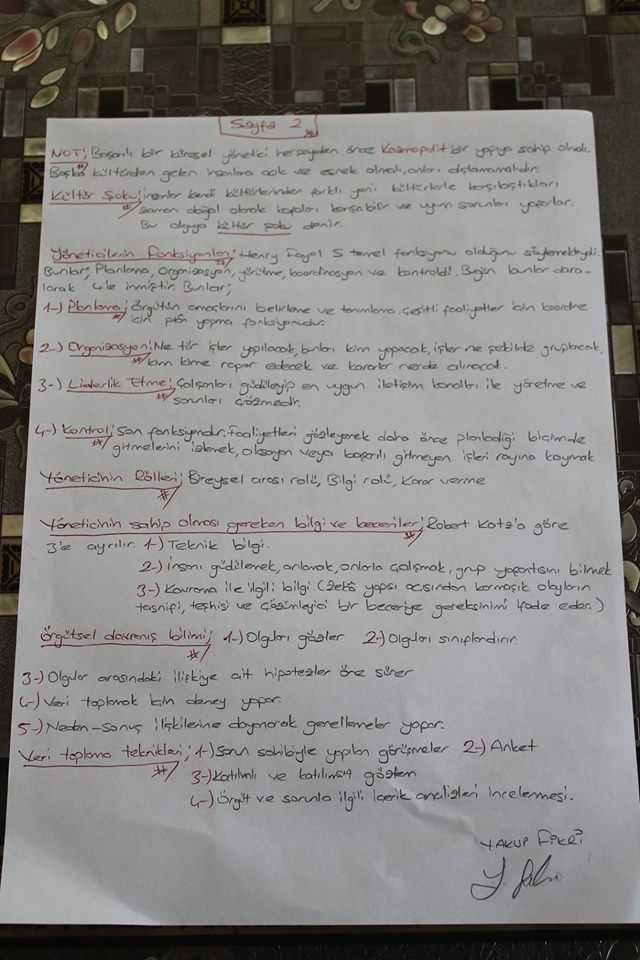 Sayfa 2
NOT; Başarılı bir küresel yönetici herşeyden önce Kozmopolit bir yapıya sahip olmalı.
Başka kültürden gelen insanlara açık ve esnek olmalı, onları dışlamamalıdır.
Kültür Şoku; insanlar kendi kültürlerinden farklı yeni kültürlerle karşılaştıkları
zaman doğal olarak kafaları karışabilir ve uyum sorunları yaşarlar.
Bu olguya kültür şoku denir.
Yöneticilerin Fonksiyonları; Henry Fayol 5 temel fonksiyonu olduğunu söylemekteydi.
Bunlar; Planlama, Organizasyon, yürütme, koordinasyon ve kontroldü. Bugün bunlar dara-
larak 4'e inmiştir. Bunlar;
1-) Planlama; Örgütün amaçlarını belirleme ve tanımlama. Çeşitli faaliyetler için koordine
için plan yapma fonksiyonudur.
2-) Organizasyon; Ne tür işler yapılacak, bunları kim yapacak, işler ne şekilde gruplnacak,
kim kime rapor edecek ve kararlar nerde alınacak.
3-) Liderlik Etme; Çalışanları güdüleyip en uygun iletişim kanalları ile yönetme ve
sorunları çözmedir.
4-) Kontrol; Son fonksiyondur. Faaliyetleri gözleyerek daha önce planladığı biçimde
gitmelerini izlemek, aksayan veya başarılı gitmeyen işleri rayına koymak
Yöneticinin Rolleri; Bireysel arası rolü, Bilgi rolü, Karar verme
Yöneticinin sahip olması gereken bilgi ve beceriler; Robert Katz'a göre
3'e ayrılır. 1-) Teknik bilgi.
2-) İnsanı güdülemek, anlamak, onlarla çalışmak, grup yaşantısını bilmek
3-) Kavrama ile ilgili bilgi (zekâ yapısı açısından karmaşık olayların
tasnifi, teşhisi ve çözümleyici bir beceriye gereksinimi ifade eder.)
Örgütsel davranış bilimi; 1-) Olguları gözler 2-) Olguları sınıflandırır
3-) Olgular arasındaki ilişkiye ait hipotezler öne sürer
4-) Veri toplamak için deney yapar.
5-) Neden-sonuç ilişkilerine dayanarak genellemeler yapar.
Veri toplama teknikleri; 1-) Sorun sahibiyle yapılan görüşmeler 2-) Anket
3-) Katılımlı ve katılımsız gözlem
4-) Örgüt ve sorunla ilgili içerik analizleri incelenmesi.
YAKUP FİKRİ